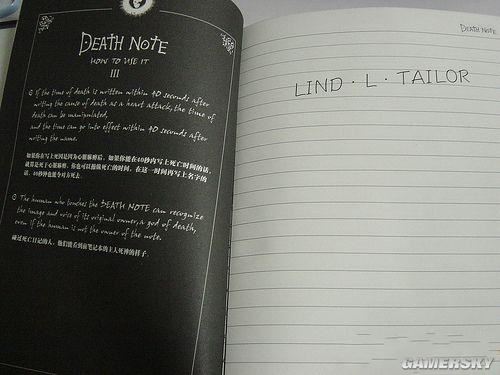 DEATH NOTE
HOW TO USE IT
III
If the time of death is written within 40 seconds after
writing the cause of death as a heart attack, the time of
death can be manipulated,
and the time can go into effect within 40 seconds after
writing the name.
如果你在写上死因是因为心脏麻醉后，如果你能在40秒内写上死亡时间的话，
就算是死于心脏麻醉，你也可以操纵死亡的时间，在这一时间再写上名字的
话，40秒钟也能令对方死去
The human who touches the DEATH NOTE can recognize
the image and voice of its original owner, a god of death,
even if the human is not the owner of the note.
碰过死亡日记的人，他们能看到前笔记本的主人死神的样子
DEATH NOTE
LIND · L · TAILOR
GAMERSKY